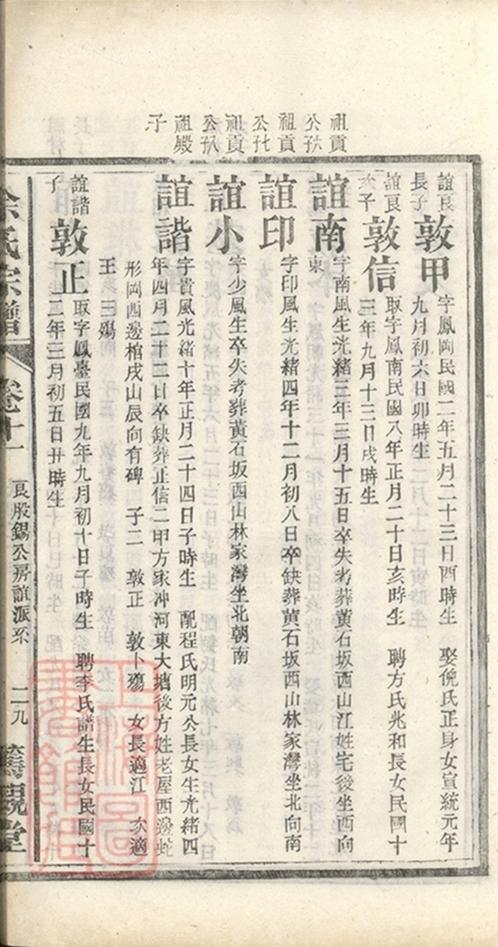 祖貢
公孙
祖貢
公孙
祖貢
公孙
祖殿
子
誼良長子 敦甲 字鳳岡民國二年五月二十三日酉時生 娶倪氏正身女宣統元年
九月初六日卯時生
誼良次子 敦信 取字鳳南民國八年正月二十日亥時生 聘方氏兆和長女民國十
三年九月十三日戌時生
誼南 字南風生光緒三年三月十五日卒失考葬黃石坂西山江姓宅後坐西向
東
誼印 字印風生光緒四年十二月初八日卒缺葬黃石坂西山林家灣坐北向南
誼小 字少風生卒失考葬黃石坂西山林家灣坐北朝南
誼諧 字貴風光緒十年正月二十四日子時生 配程氏明元公長女生光緒四
年四月二十二日卒缺葬正信二甲方家冲河東大塘後方姓老屋西邊蛇
形岡西邊棺戌山辰向有碑 子二 敦正 敦卜殤 女長適江 次適
王 三殤
誼諧子 敦正 取字鳳臺民國九年九月初十日子時生 聘李氏諧生長女民國十
二年三月初五日丑時生
余氏宗譜 卷十一 良股錫公房誼派系 二九 篤親堂